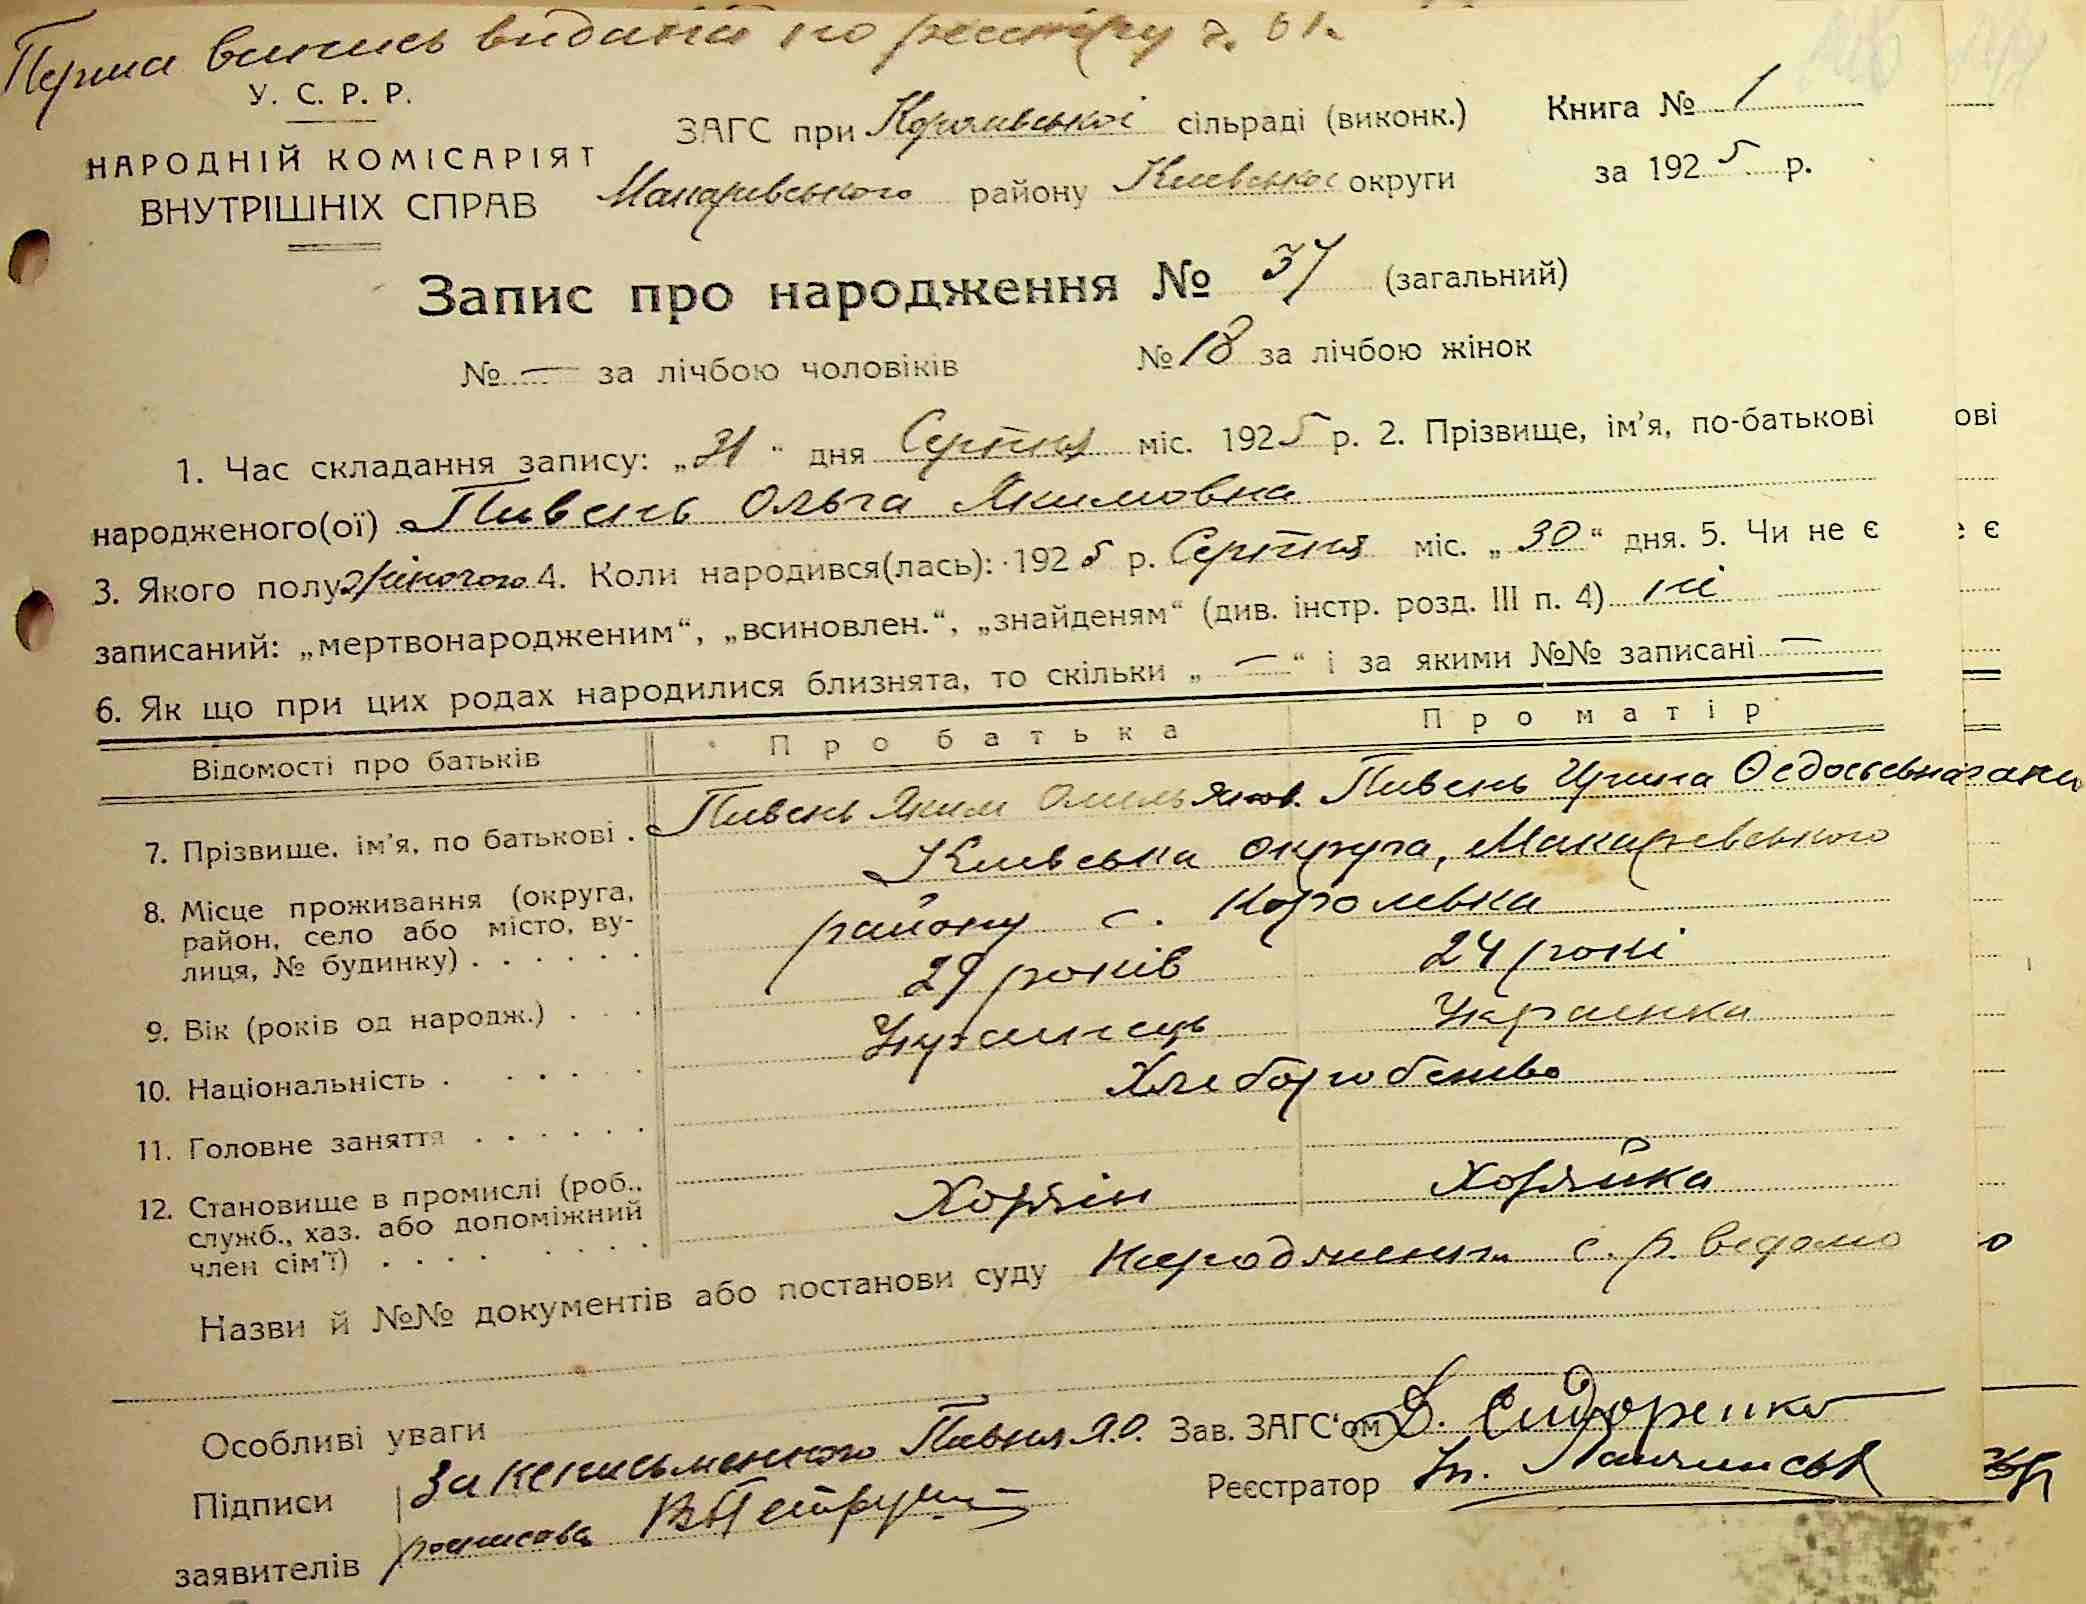 Перша випись видана по реєстру г. 61.
У. С. Р. Р.
НАРОДНІЙ КОМІСАРІЯТ
ВНУТРІШНІХ СПРАВ
ЗАГС при Королівської сільраді (виконк.)
Макарівського району Київської округи
Книга № 1
за 1925 р.
Запис про народження № 37 (загальний)
№ — за лічбою чоловіків № 18 за лічбою жінок
1. Час складання запису: „31“ дня Серпня міс. 1925 р. 2. Прізвище, ім’я, по-батькові
народженого(ої) Пивень Ольга Якимовна
3. Якого полу жіночого 4. Коли народився(лась): 1925 р. Серпня міс. „30“ дня. 5. Чи не є
записаний: „мертвонародженим“, „всиновлен.“, „знайденям“ (див. інстр. розд. III п. 4) ні
6. Як що при цих родах народилися близнята, то скільки „—“ і за якими №№ записані —
Відомості про батьків Про батька Про матір
7. Прізвище, ім’я, по батькові . Пивень Яким Омельянов. Пивень Ирина Федосьевна
8. Місце проживання (округа, Киівська округа, Макарівського
район, село або місто, ву- району с. Королевка
лиця, № будинку) . . . . . .
9. Вік (років од народж.) . . . 29 років 24 роки
10. Національність . . . . . Украинець Украинка
11. Головне заняття . . . . . . Хлеборобство
12. Становище в промислі (роб., Хозяін Хозяйка
служб., хаз. або допоміжний
член сім’ї) . . . . . . . .
Назви й №№ документів або постанови суду народження с. р. ведомо
Особливі уваги
Підписи За неписьменного Пивня Я.О. Зав. ЗАГС‘ом Д. Сидоренко
заявителів росписався В Петру Реєстратор
ові
е є
о